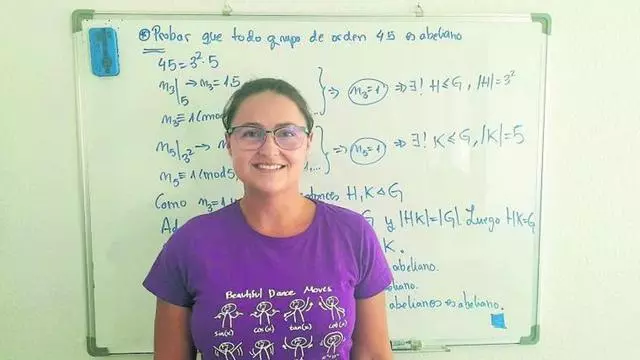 ⊛ Probar que todo grupo de orden 45 es abeliano
45 = 3² · 5
n₃ | 5 → n₃ = 1, 5
⇒ n₃ = 1 ⇒ ∃! H ≤ G, |H| = 3²
n₃ ≡ 1 (mod
n₅ | 3² → n
⇒ n₅ = 1 ⇒ ∃! K ≤ G, |K| = 5
n₅ ≡ 1 (mod 5
Como n₃ = 1 H, K ◁ G
G y |HK| = |G|. Luego HK = G
K.
abeliano.
abelianos es abeliano.
Beautiful Dance Moves
sin(x) cos(x) tan(x) cot(x)